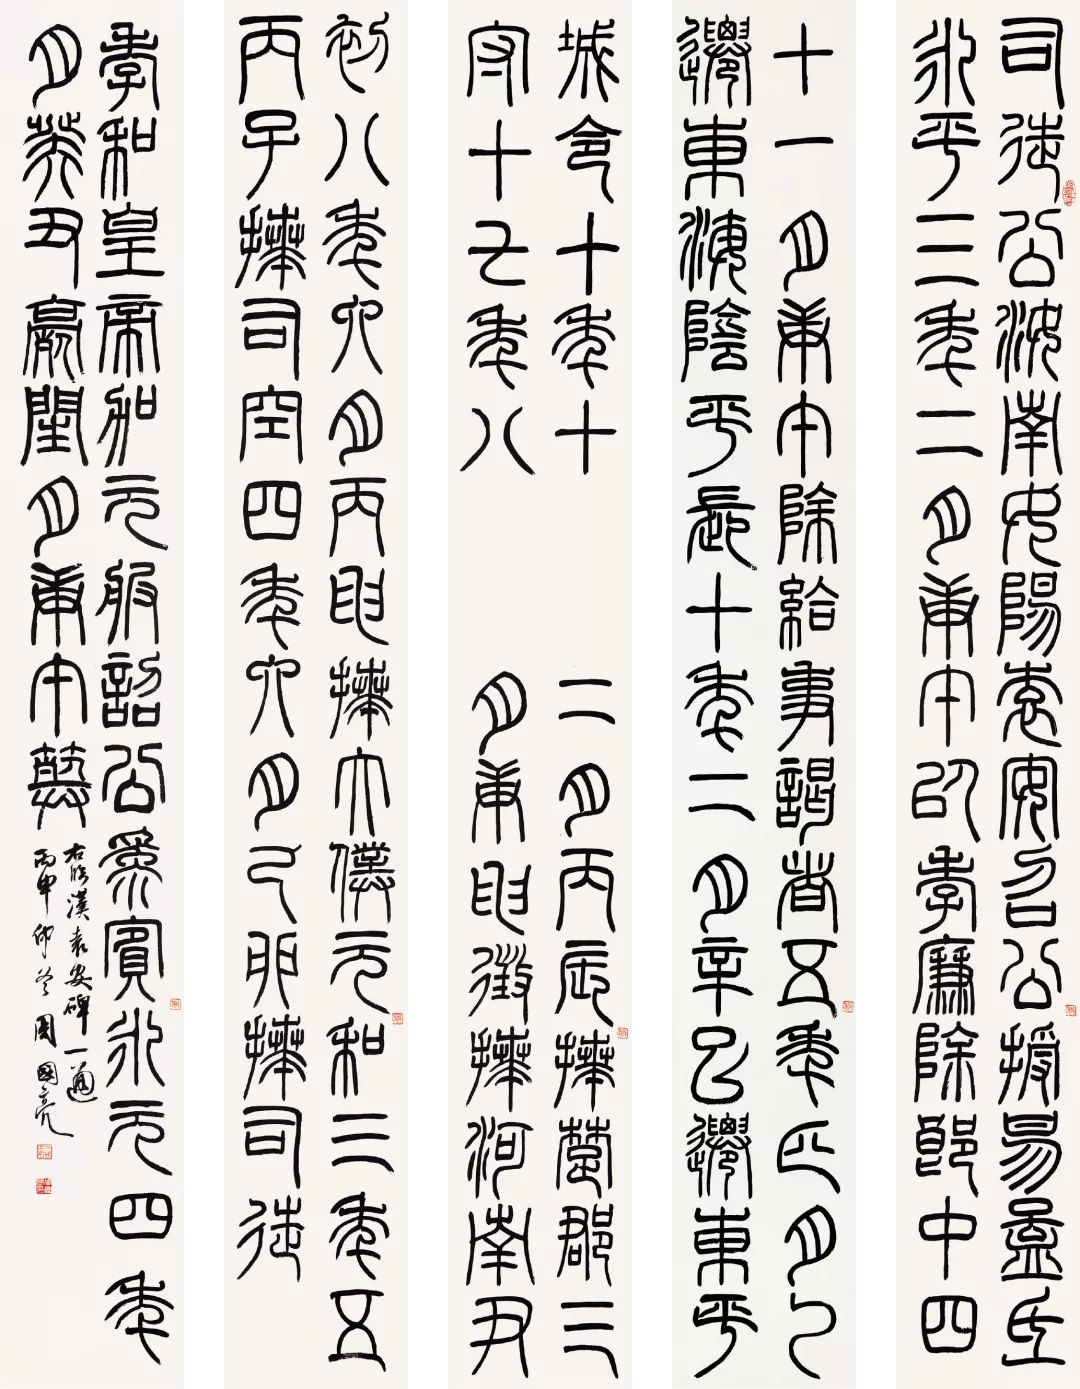 司徒公汝南女陽袁安召公授易孟氏
永平三年二月庚午以孝廉除郎中四
十一月庚午除給事謁者五年正月乙
遷東海陰平長十年二月辛巳遷東平
城令十年十二月丙辰拜楚郡三
守十七年八月庚申徵拜河南尹
初八年六月丙申拜大僕元和三年五
丙子拜司空四年六月己卯拜司徒
孝和皇帝加元服詔公為賓永元四年
月癸丑薨閏月庚午葬
右臨漢袁安碑一通
丙申仲冬周國亮